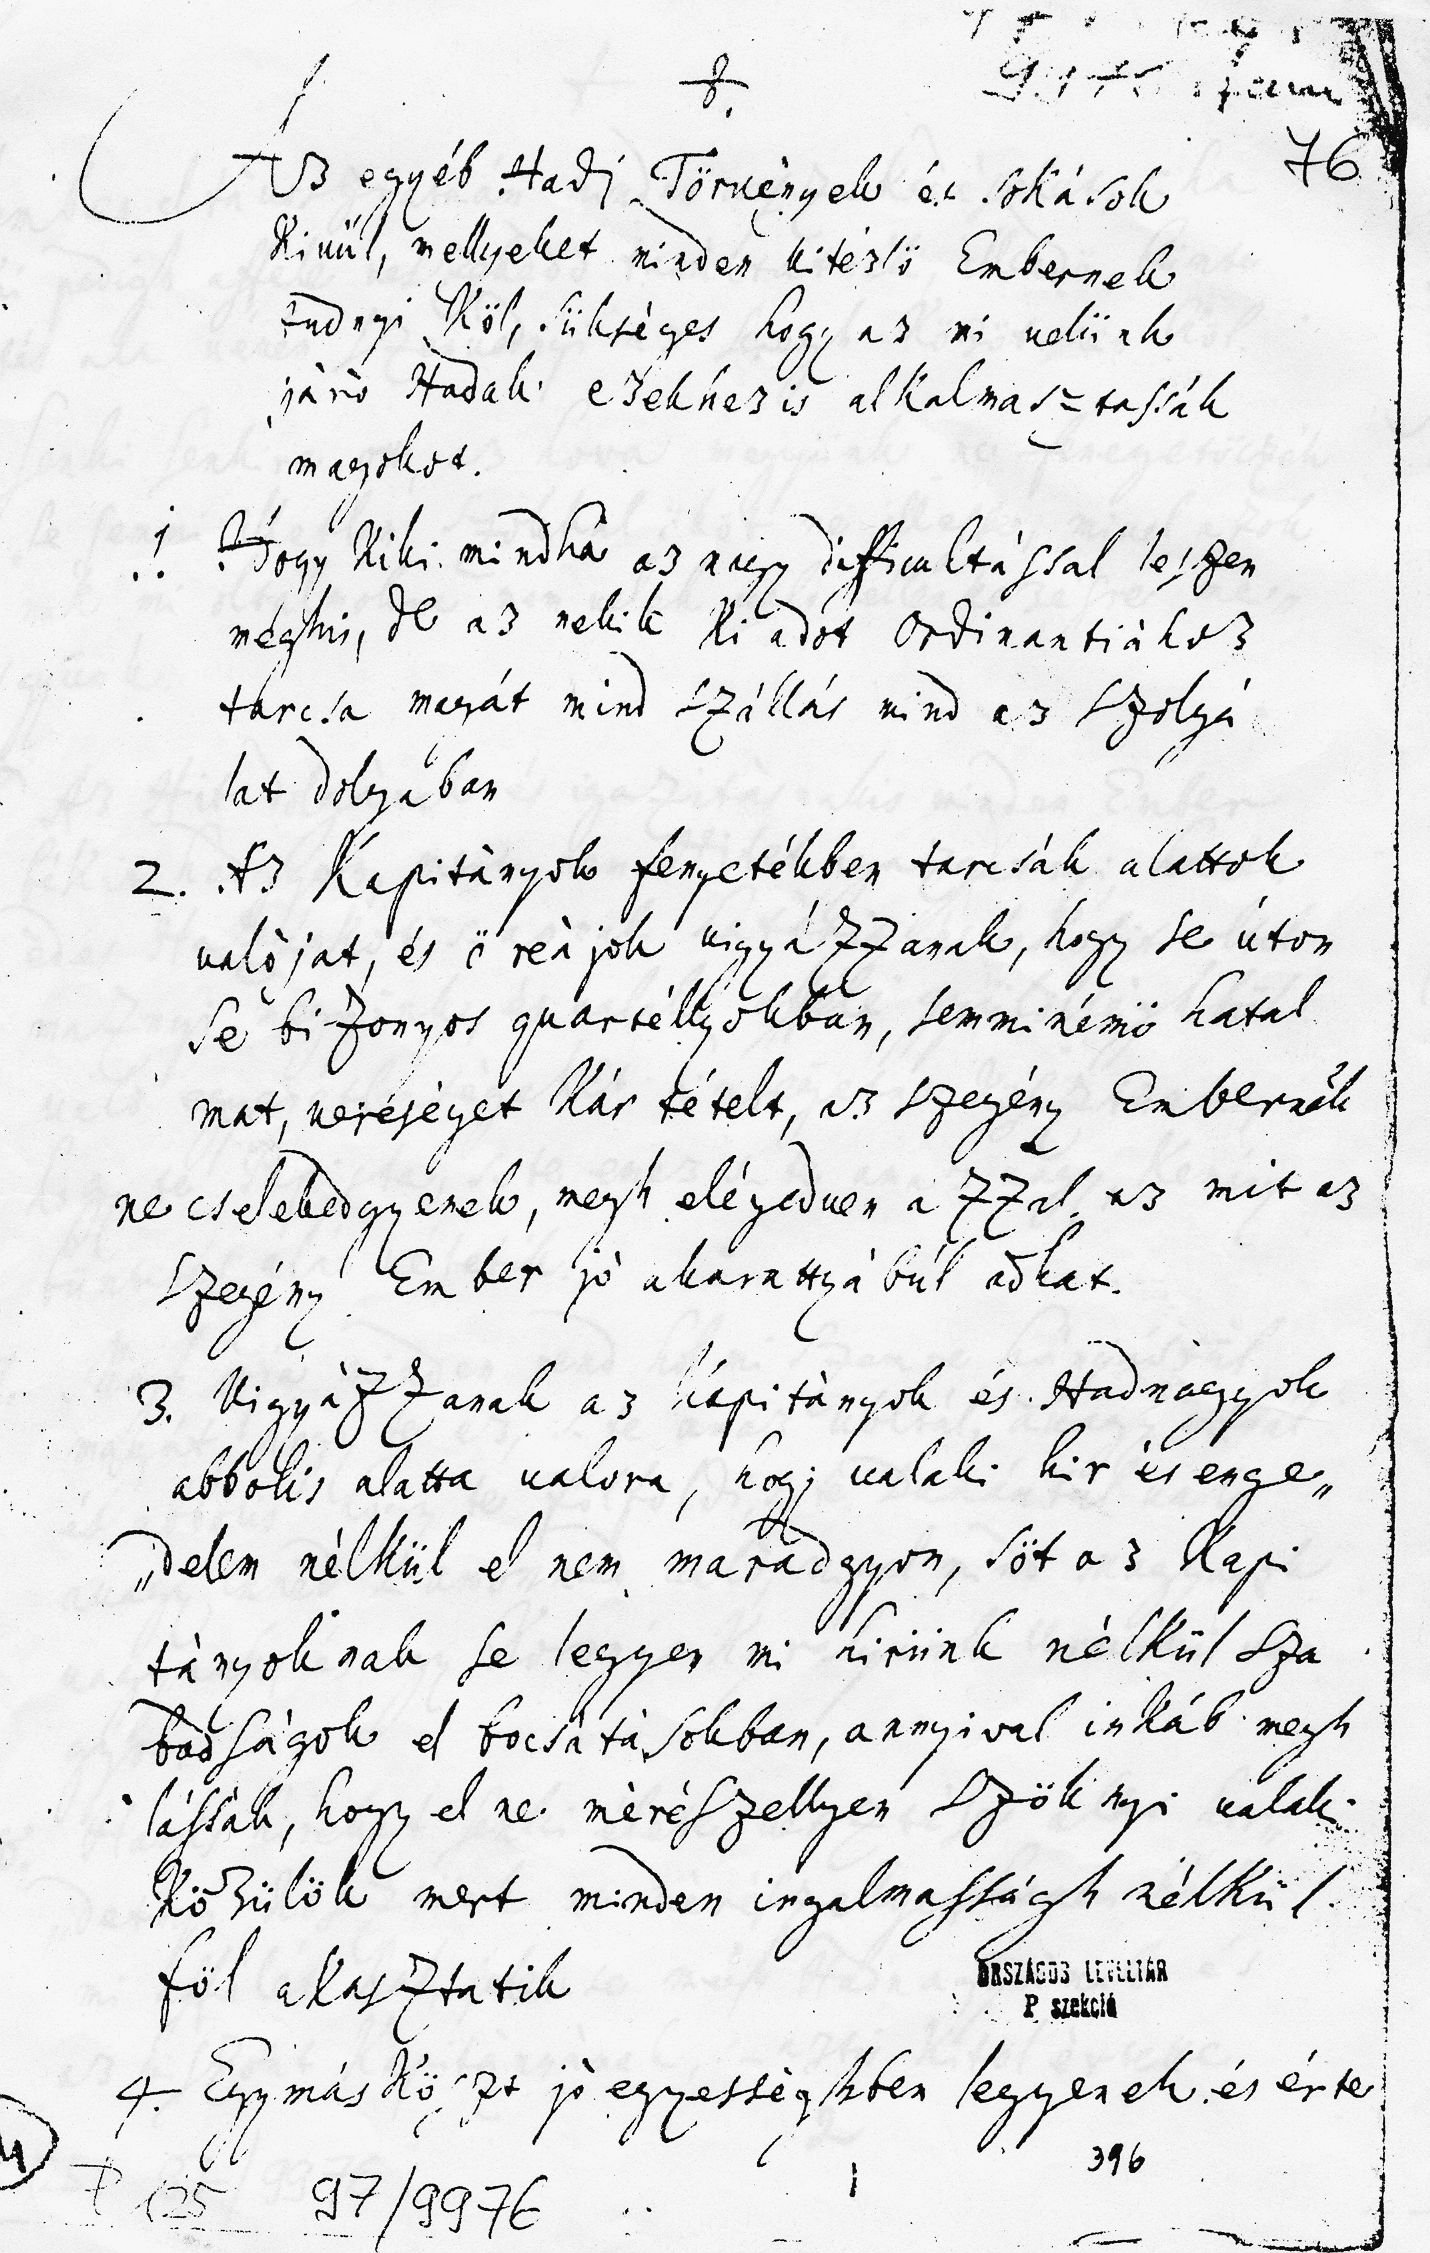 76
Az egyéb Hadi Törvények és sokások
Kivül, mellyeket minden vitézlö Embernek
tudnyi Köl, sükséges hogy az mi velünk
járó Hadak ezekhez is alkalmasztassák
magokot.
1. Hogy Kiki mindha az nagy difficultással leszen
méghis, de az nekik Ki adot Ordinantiához
tarcsa magát mind szállás mind az szolgá
lat dolgában
2. Az Kapitányok fenyetékben tarcsák alattok
valójat, és ö reájok vigyázzanak, hogy se úton
se bizonyos quartéllyokban, semminémö hatal
mat, veréséget Kár tételt, az szegény Embernek
ne cselekedgyenek, megh elégedven azzal az mit az
szegény Ember jó akarattyábúl adhat.
3. Vigyázzanak az Kapitányok és Hadnagyok
abbolis alatta valora, hogy valaki hir és enge„
„delem nélkül el nem maradgyon, söt az Kapi
tányoknak se legyen mi hirünk nélkül sza
badságok el bocsátásokban, annyival inkáb megh
lássák, hogy el ne merészellyen szöknyi valaki
Közülök mert minden irgalmasságh nélkül
föl akasztatik
ORSZÁGOS LEVÉLTÁR
P szekció
4. Egymás Közt jó egyességhben legyenek és érte
396
1
P 125 97/9976